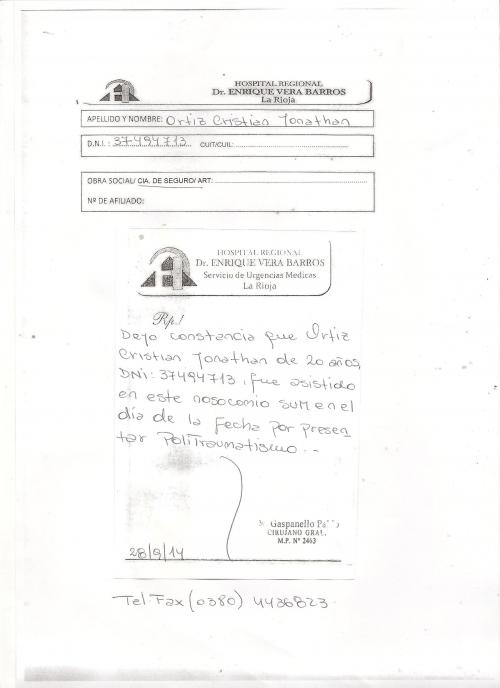 HOSPITAL REGIONAL
Dr. ENRIQUE VERA BARROS
La Rioja
APELLIDO Y NOMBRE: Ortiz Cristian Jonathan
D.N.I. : 37494713 CUIT/CUIL:
OBRA SOCIAL/ CIA. DE SEGURO/ ART:
Nº DE AFILIADO:
HOSPITAL REGIONAL
Dr. ENRIQUE VERA BARROS
Servicio de Urgencias Medicas
La Rioja
Rp./
Dejo constancia que Ortiz
Cristian Jonathan de 20 años,
DNI: 37494713, fue asistido
en este nosocomio SUM en el
día de la fecha por presen
tar Politraumatismo..-
Gaspanello
CIRUJANO GRAL.
M.P. Nº 2463
28/9/14
Tel-Fax (0380) 4436823